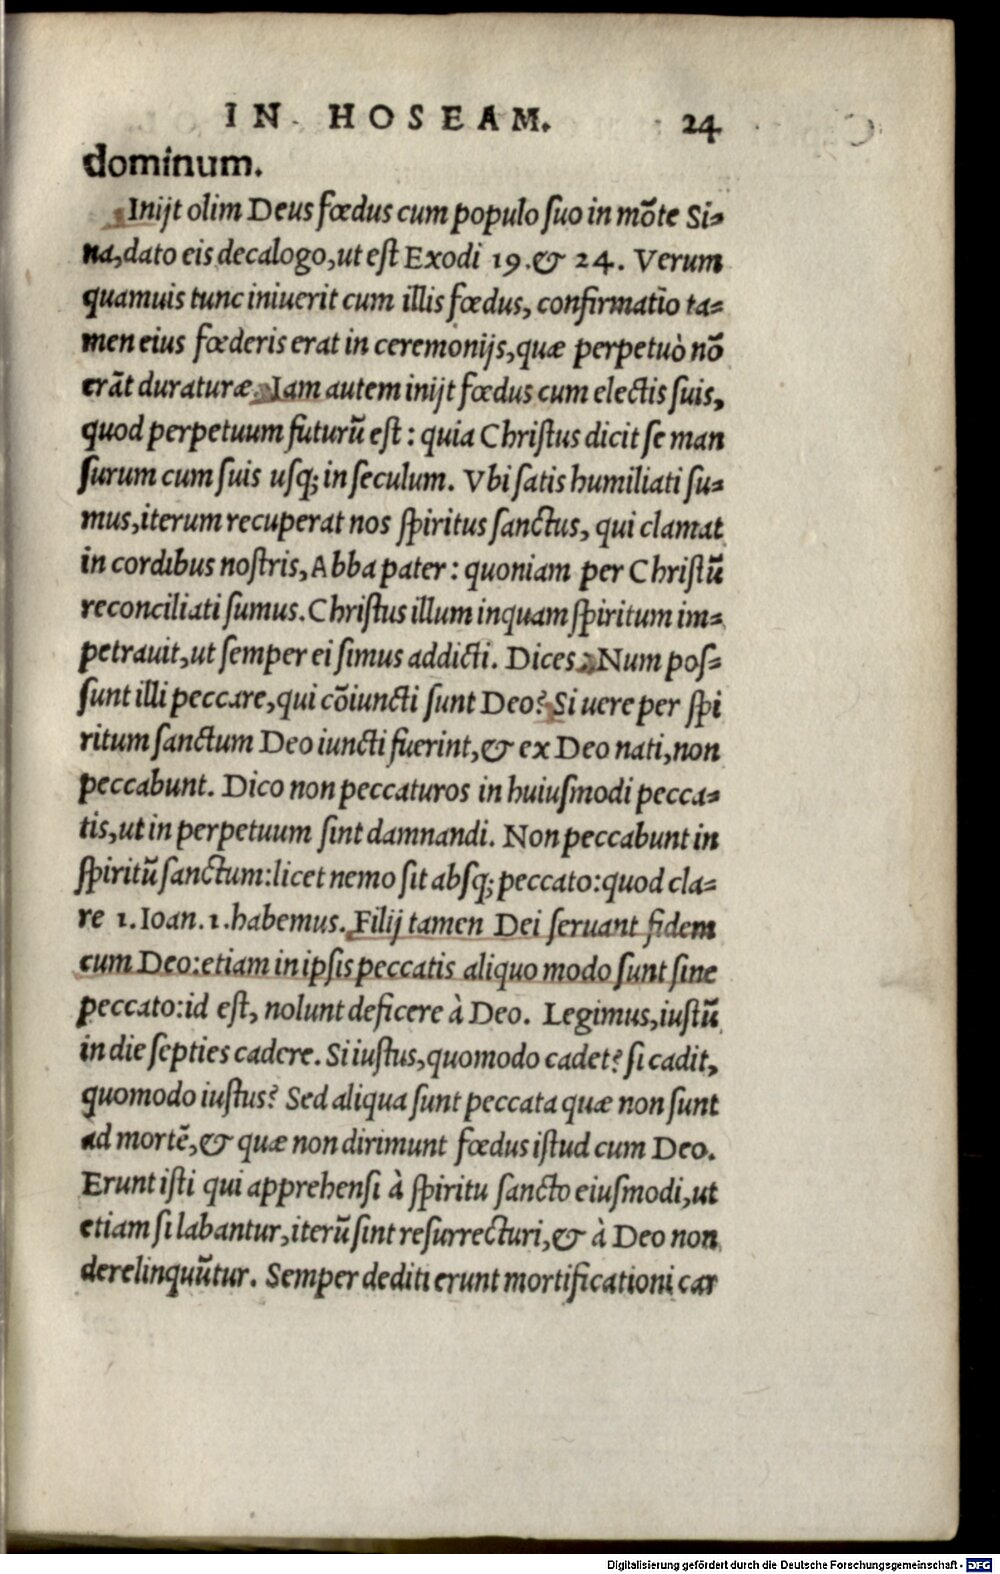 IN HOSEAM. 24
dominum.
Inijt olim Deus fœdus cum populo ſuo in mõte Si⸗
na,dato eis decalogo,ut eſt Exodi 19.& 24. Verum
quamuis tunc iniuerit cum illis fœdus, confirmatio ta⸗
men eius fœderis erat in ceremonijs,quæ perpetuò nõ
erãt duraturæ. Iam autem inijt fœdus cum electis ſuis,
quod perpetuum futurũ eſt : quia Chriſtus dicit ſe man
ſurum cum ſuis uſq; in ſeculum. Vbi ſatis humiliati ſu⸗
mus,iterum recuperat nos ſpiritus ſanctus, qui clamat
in cordibus noſtris, Abba pater : quoniam per Chriſtũ
reconciliati ſumus. Chriſtus illum inquam ſpiritum im⸗
petrauit,ut ſemper ei ſimus addicti. Dices. Num poſ⸗
ſunt illi peccare,qui cõiuncti ſunt Deo? Si uere per ſpi
ritum ſanctum Deo iuncti fuerint,& ex Deo nati,non
peccabunt. Dico non peccaturos in huiuſmodi pecca⸗
tis,ut in perpetuum ſint damnandi. Non peccabunt in
ſpiritũ ſanctum:licet nemo ſit abſq; peccato:quod cla⸗
re 1. Ioan. 1. habemus. Filij tamen Dei ſeruant fidem
cum Deo:etiam in ipſis peccatis aliquo modo ſunt ſine
peccato:id eſt, nolunt deficere à Deo. Legimus,iuſtũ
in die ſepties cadere. Si iuſtus,quomodo cadet? ſi cadit,
quomodo iuſtus? Sed aliqua ſunt peccata quæ non ſunt
ad mortẽ,& quæ non dirimunt fœdus iſtud cum Deo.
Erunt iſti qui apprehenſi à ſpiritu ſancto eiuſmodi,ut
etiam ſi labantur,iterũ ſint reſurrecturi,& à Deo non
derelinquũtur. Semper dediti erunt mortificationi car
Digitalisierung gefördert durch die Deutsche Forschungsgemeinschaft - DFG